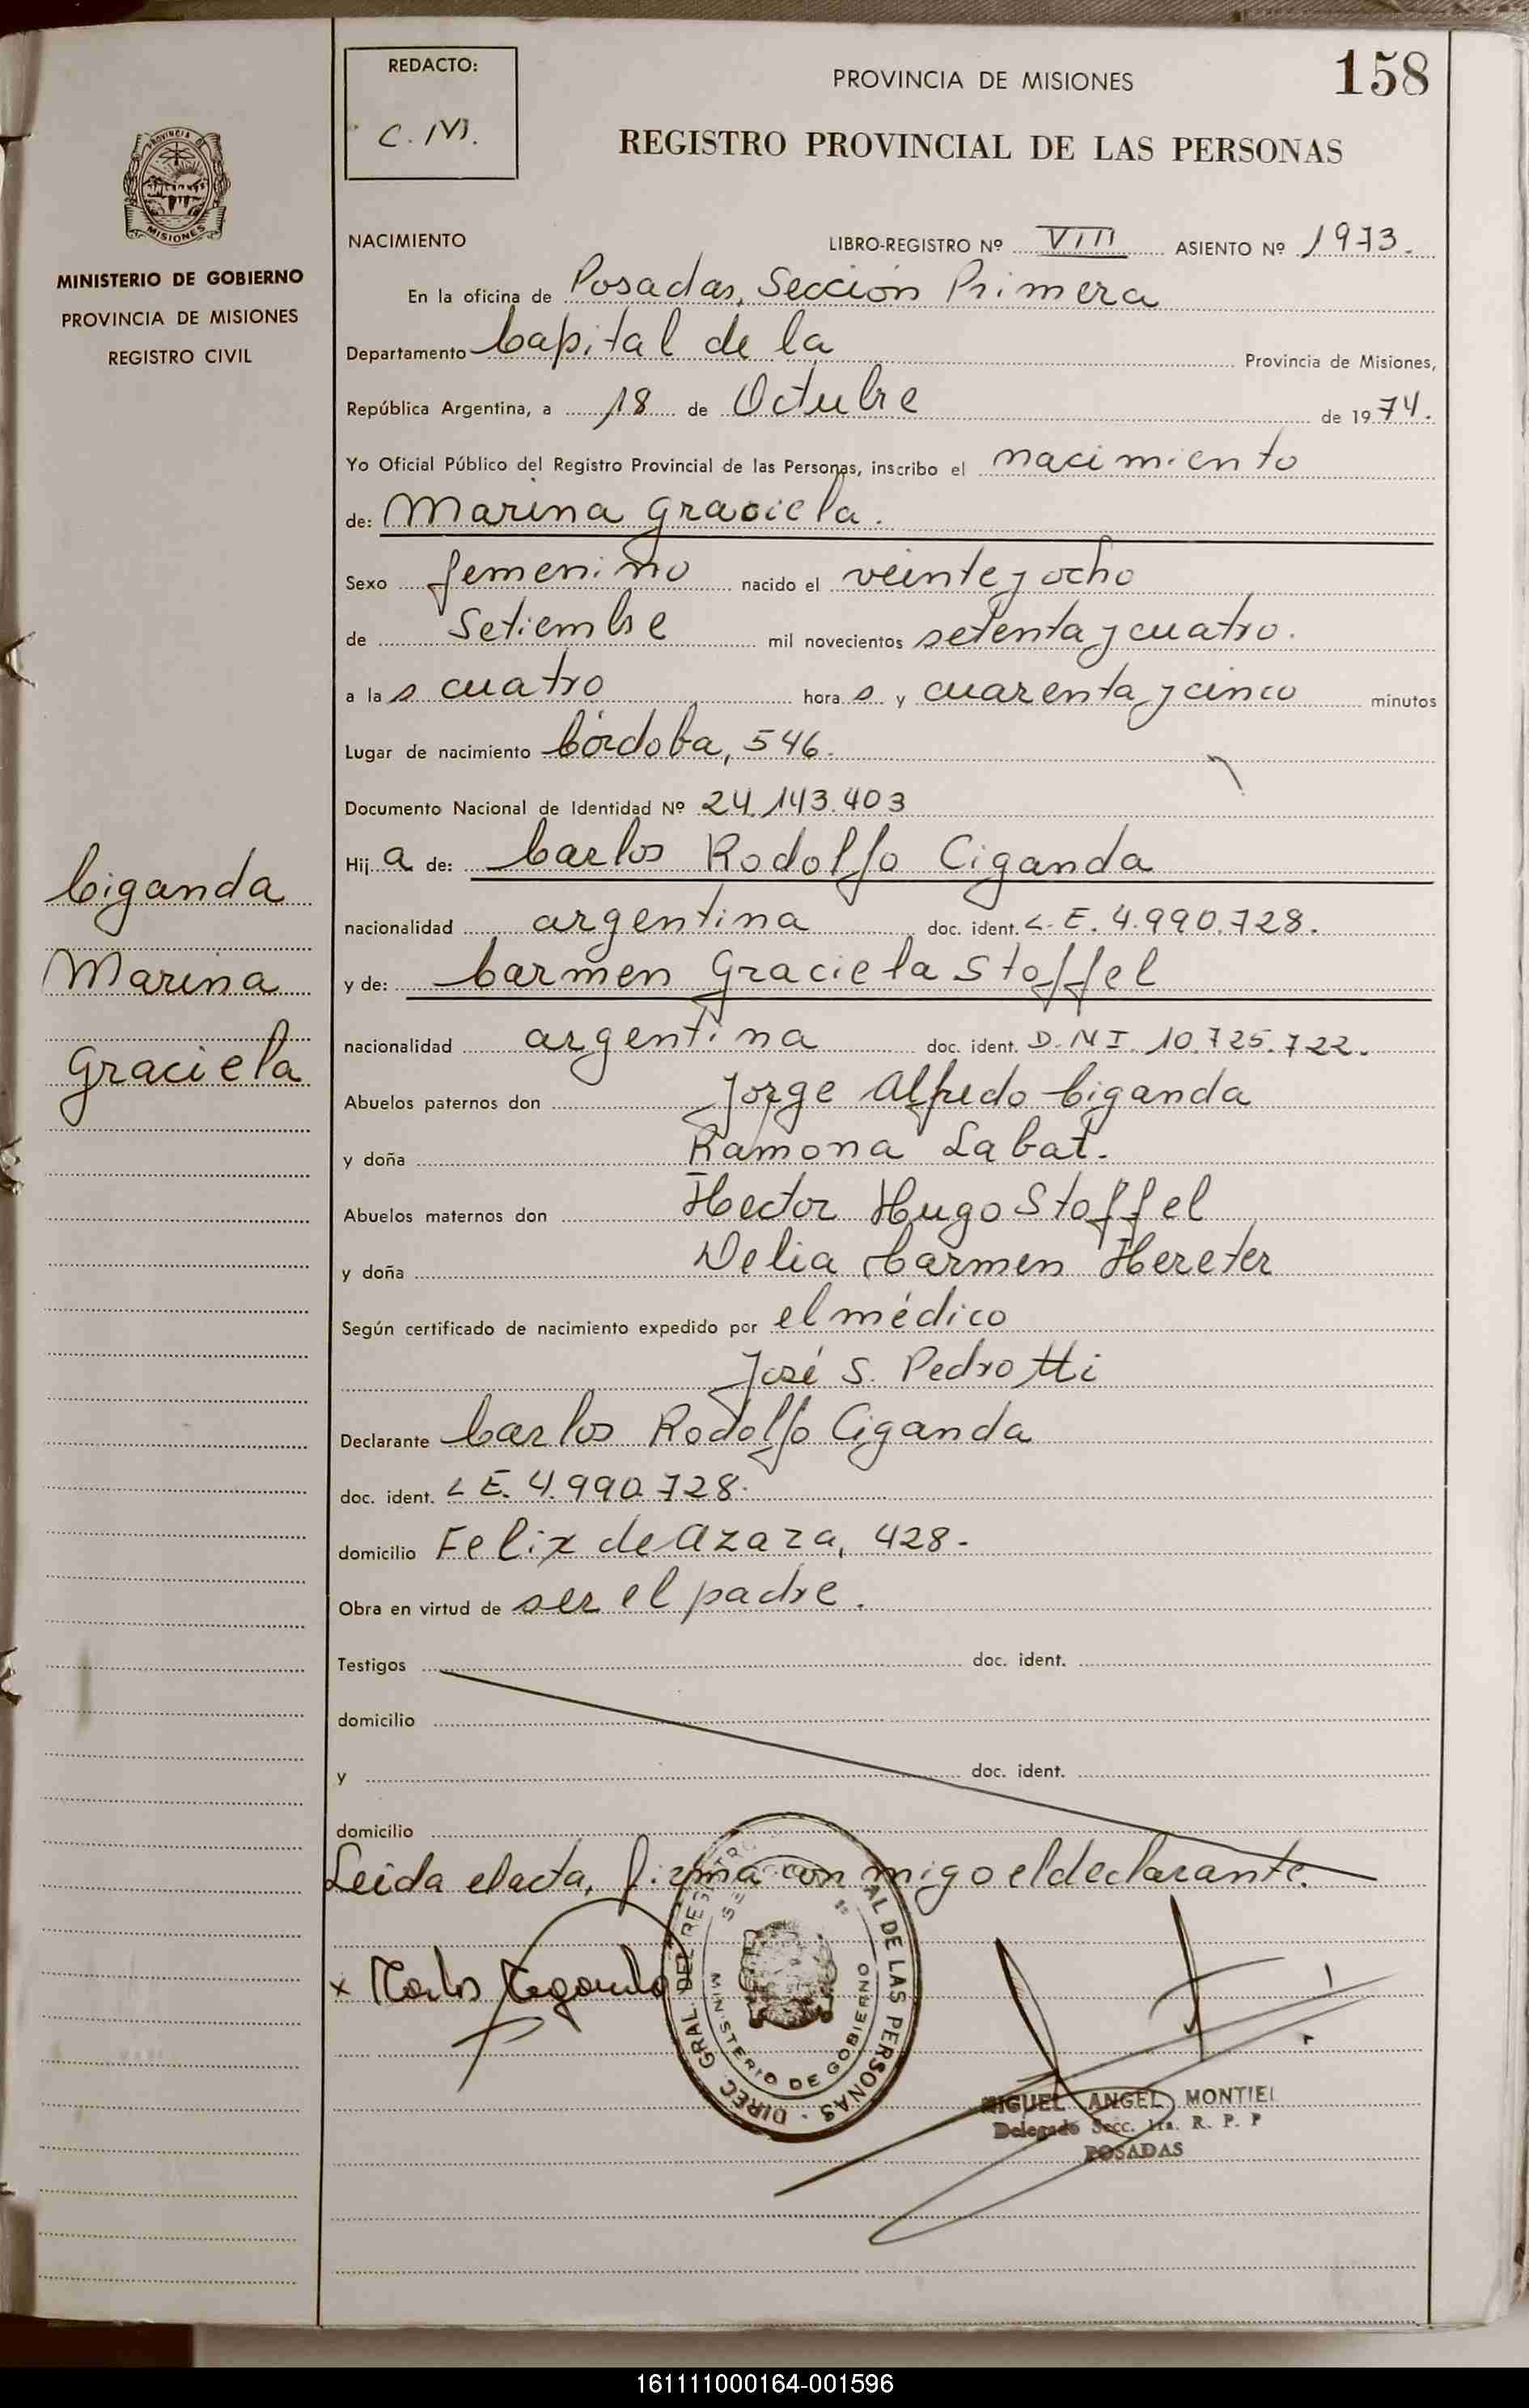 REDACTO:
C. M.
PROVINCIA DE MISIONES
158
REGISTRO PROVINCIAL DE LAS PERSONAS
PROVINCIA
MISIONES
MINISTERIO DE GOBIERNO
PROVINCIA DE MISIONES
REGISTRO CIVIL
NACIMIENTO LIBRO-REGISTRO Nº VIII ASIENTO Nº 1973.
En la oficina de Posadas, Sección Primera
Departamento Capital de la Provincia de Misiones,
República Argentina, a 18 de Octubre de 1974.
Yo Oficial Público del Registro Provincial de las Personas, inscribo el nacimiento
de: Marina Graciela.
Sexo femenino nacido el veinte y ocho
de Setiembre mil novecientos setenta y cuatro.
a las cuatro horas y cuarenta y cinco minutos
Lugar de nacimiento Córdoba, 546.
Documento Nacional de Identidad Nº 24.143.403
Hija de: Carlos Rodolfo Ciganda
nacionalidad argentina doc. ident. L.E. 4.990.728.
y de: Carmen Graciela Stoffel
nacionalidad argentina doc. ident. D.N.I. 10.725.722.
Abuelos paternos don Jorge Alfredo Ciganda
y doña Ramona Labat.
Abuelos maternos don Hector Hugo Stoffel
y doña Delia Carmen Hereter
Según certificado de nacimiento expedido por el médico
José S. Pedrotti
Declarante Carlos Rodolfo Ciganda
doc. ident. L E. 4.990.728.
domicilio Felix de Azara, 428.
Obra en virtud de ser el padre.
Testigos doc. ident.
domicilio
y doc. ident.
domicilio
Leida el acta, firma con migo el declarante.
Ciganda
Marina
Graciela
x Carlos Ciganda
DIREC. GRAL. DEL REGISTRO AL DE LAS PERSONAS
MINISTERIO DE GOBIERNO
MIGUEL ANGEL MONTIEL
Delegado Secc. 1ra. R. P. P
POSADAS
161111000164-001596